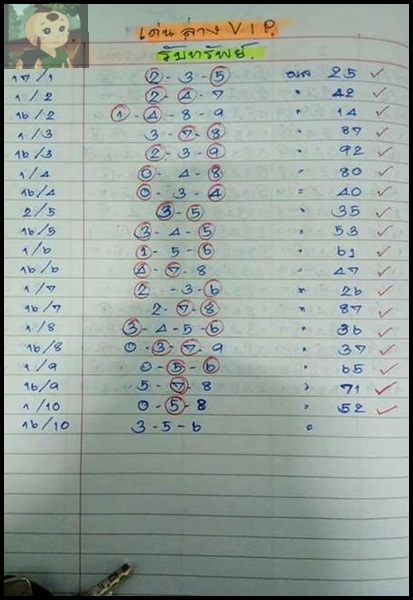 เด่น ล่าง V I P.
รับทรัพย์.
17/1 2-3-5 ผล 25 ✓
1/2 2-4-7 " 42 ✓
16/2 1-4-8-9 " 14 ✓
1/3 3-7-8 " 87 ✓
16/3 2-3-9 " 92 ✓
1/4 0-4-8 " 80 ✓
16/4 0-3-4 " 40 ✓
2/5 3-5 " 35 ✓
16/5 3-4-5 " 53 ✓
1/6 1-5-6 " 61 ✓
16/6 4-7-8 " 47 ✓
1/7 2-3-6 " 26 ✓
16/7 2-7-8 " 87 ✓
1/8 3-4-5-6 " 36 ✓
16/8 0-3-7-9 " 37 ✓
1/9 0-5-6 " 65 ✓
16/9 5-7-8 " 71 ✓
1/10 0-5-8 " 52 ✓
16/10 3-5-6 "